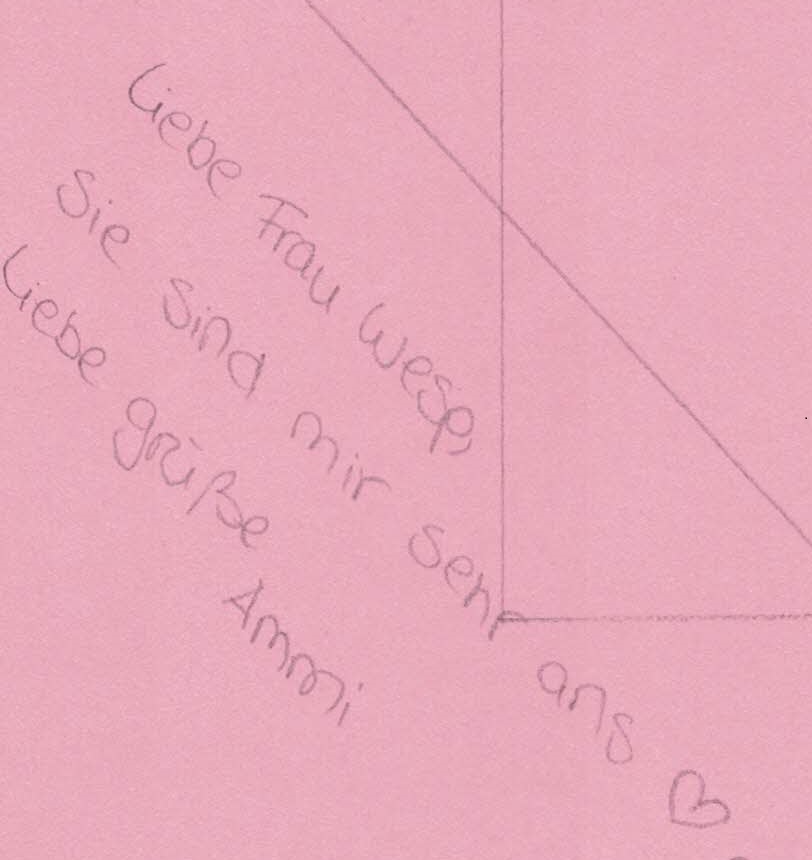 Liebe Frau Wesp,
Sie sind mir sehr ans ♡
Liebe grüße
Ammi